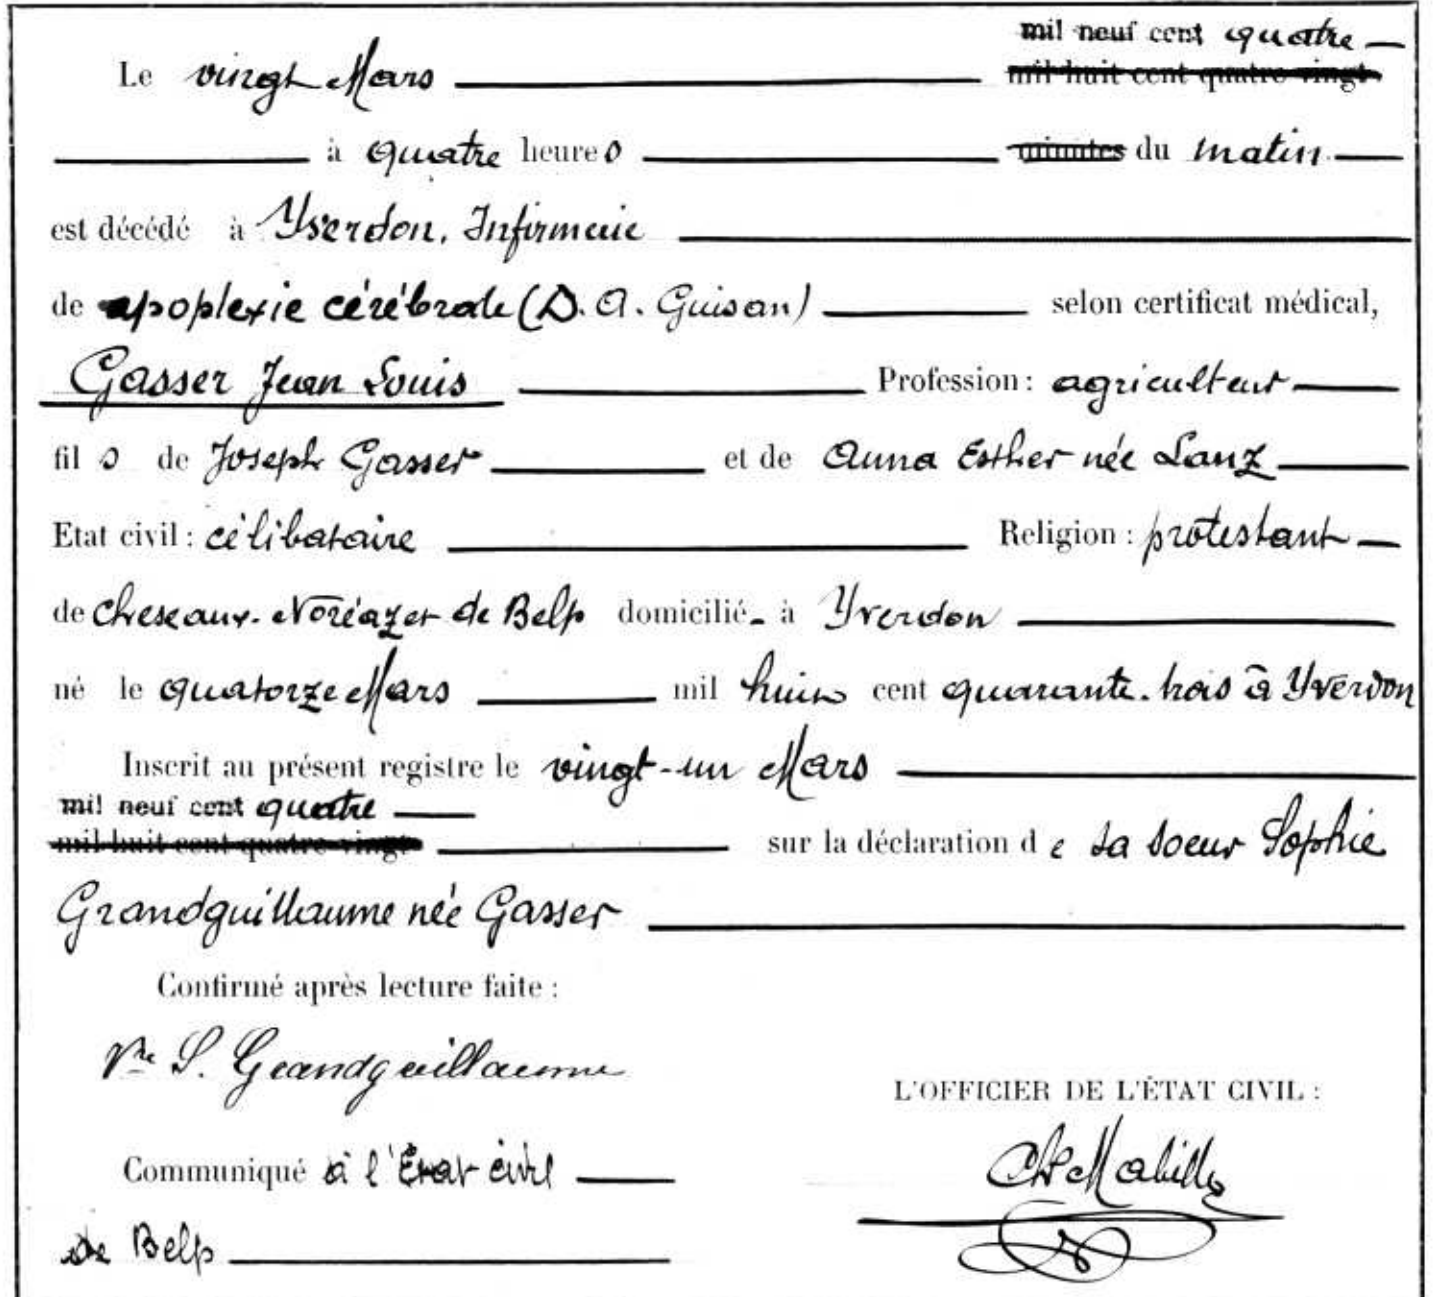 mil neuf cent quatre
Le vingt Mars mil huit cent quatre-vingt
à quatre heures minutes du matin
est décédé à Yverdon, Infirmerie
de apoplexie cérébrale (D. A. Guisan) selon certificat médical,
Gasser Jean Louis Profession : agriculteur
fils de Joseph Gasser et de Anna Esther née Lanz
Etat civil : célibataire Religion : protestant
de Cheseaux-Noréaz et de Belp domicilié à Yverdon
né le quatorze Mars mil huit cent quarante-trois à Yverdon
Inscrit au présent registre le vingt-un Mars
mil neuf cent quatre
mil huit cent quatre-vingt sur la déclaration de sa soeur Sophie
Grandguillaume née Gasser
Confirmé après lecture faite :
Vve S. Grandguillaume
L'OFFICIER DE L'ÉTAT CIVIL :
Communiqué à l'Etat civil
de Belp